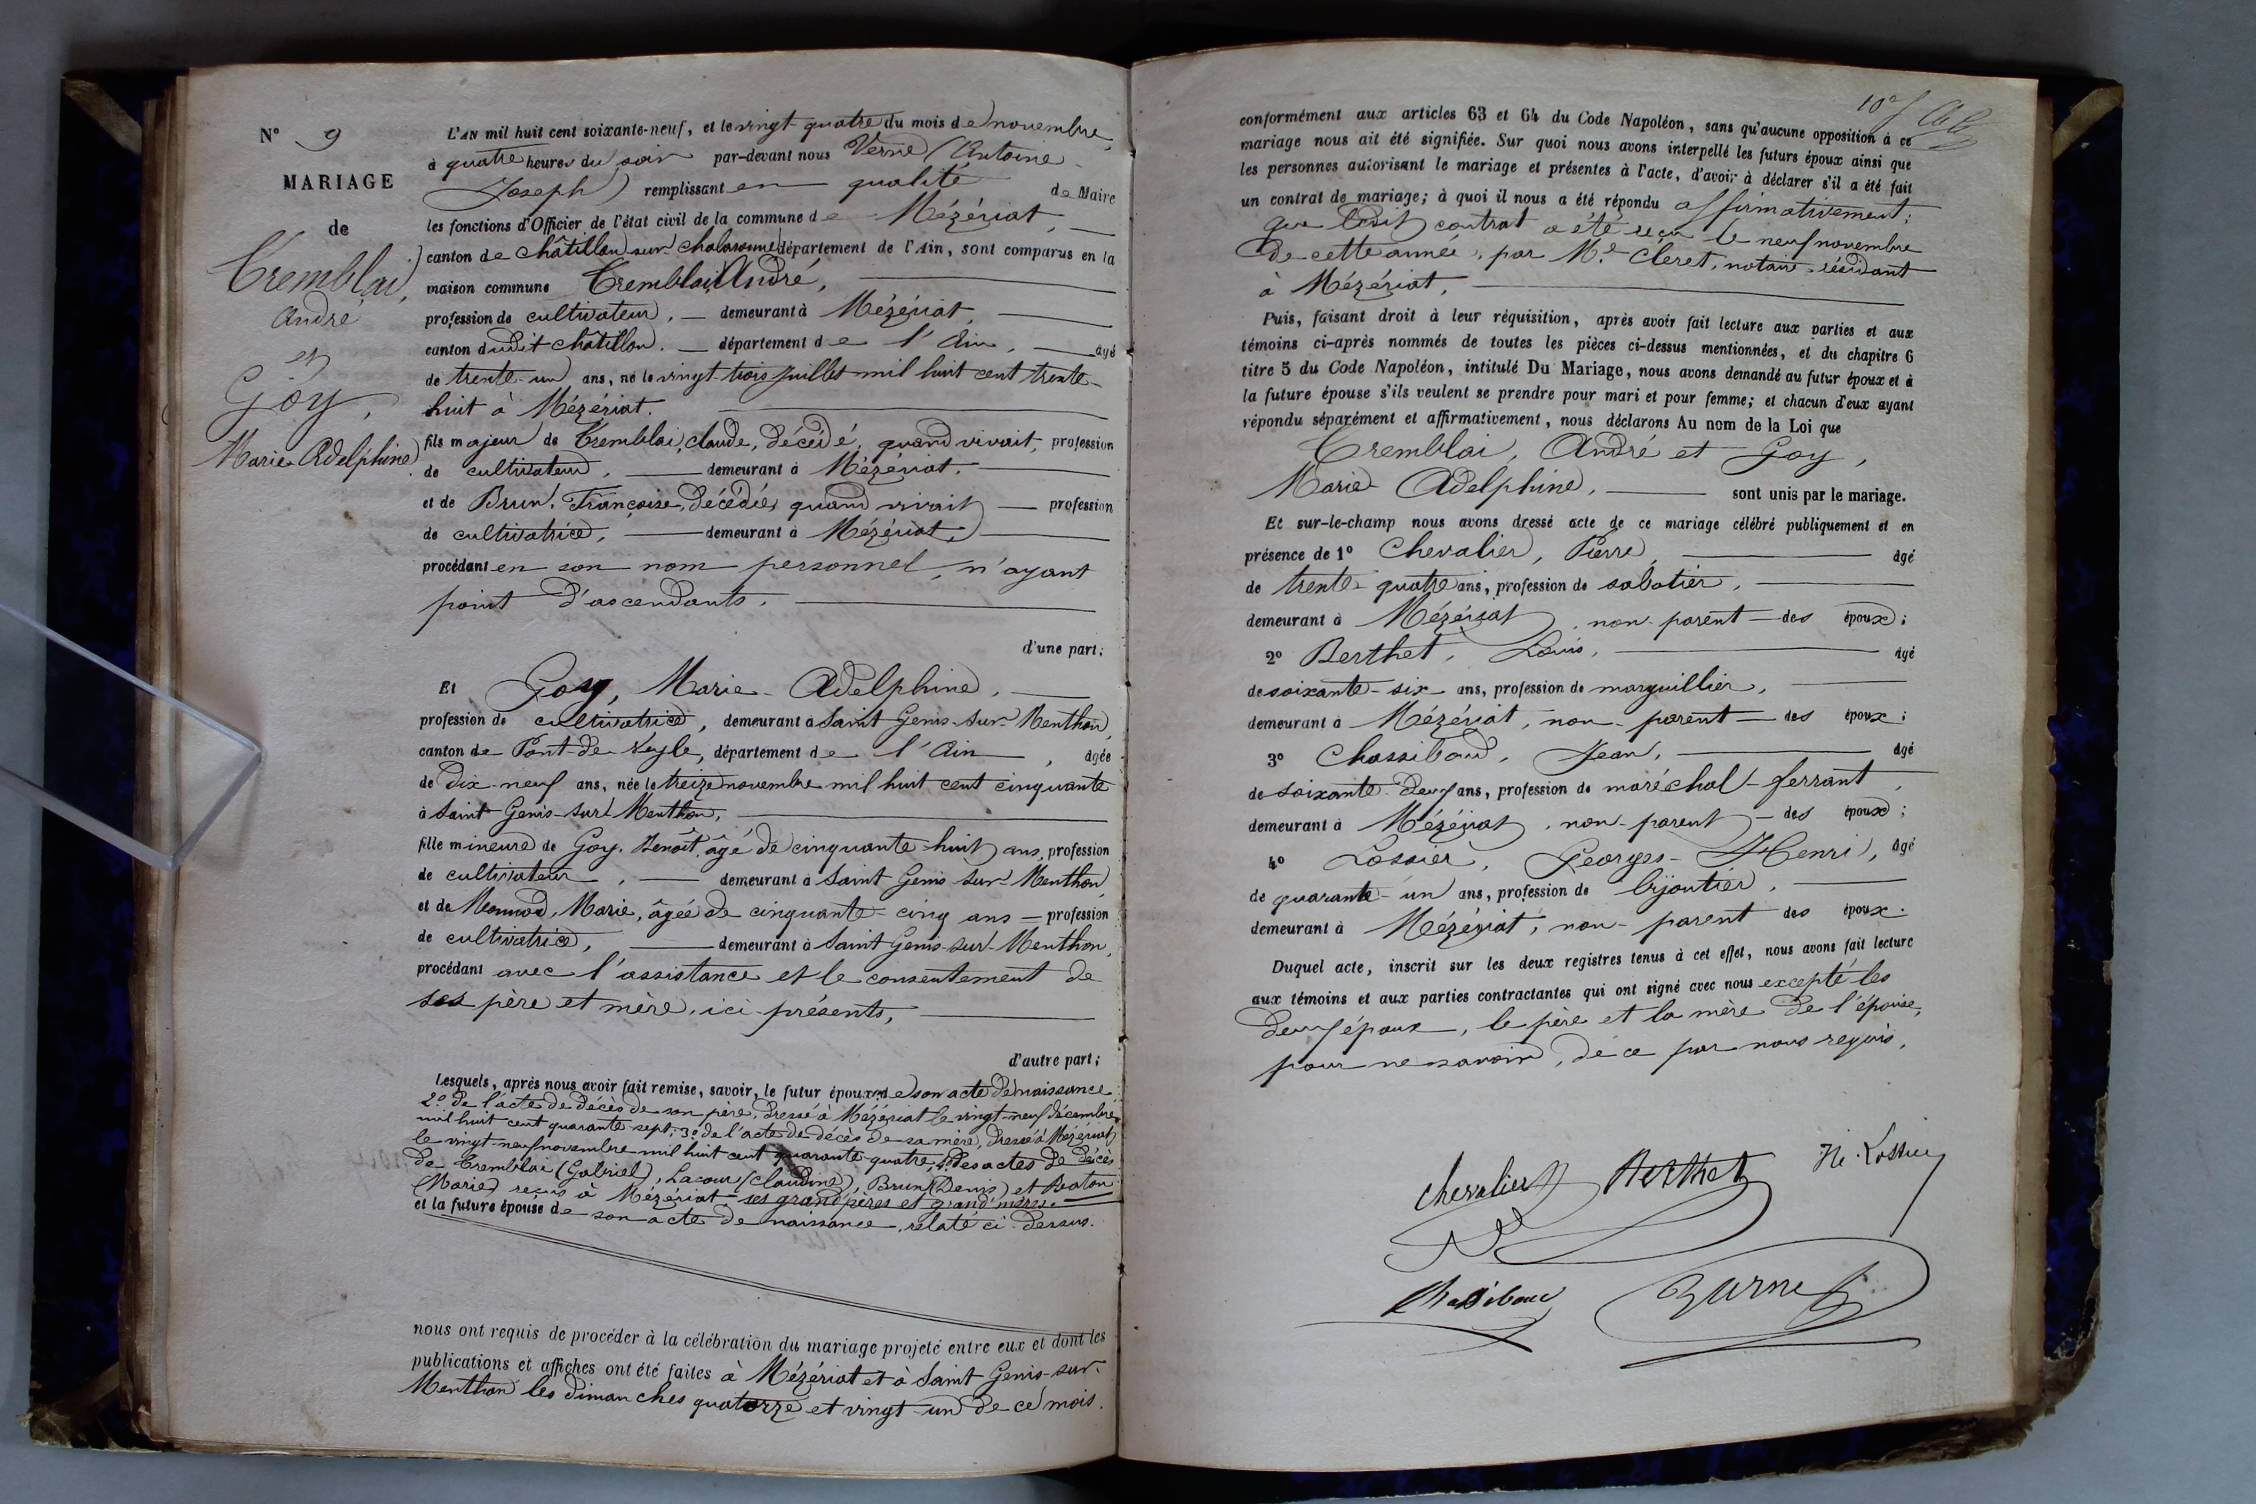 N° 9
MARIAGE
de
Tremblai,
André
et
Goy,
Marie Adelphine.
L'AN mil huit cent soixante-neuf, et le vingt-quatre du mois de novembre,
à quatre heures du soir par-devant nous Verne (Antoine
Joseph) remplissant en qualité de Maire
les fonctions d'Officier de l'état civil de la commune de Mézériat,
canton de Châtillon sur Chalaronne département de l'Ain, sont comparus en la
maison commune Tremblai, André,
profession de cultivateur, demeurant à Mézériat,
canton dudit Châtillon. département de l'Ain, âgé
de trente-un ans, né le vingt-trois juillet mil huit cent trente-
huit à Mézériat.
fils majeur de Tremblai, Claude, décédé, quand vivait, profession
de cultivateur, demeurant à Mézériat,
et de Brun, Françoise, décédée, quand vivait profession
de cultivatrice, demeurant à Mézériat,
procédant en son nom personnel, n'ayant
point d'ascendants.
d'une part;
Et Goy, Marie-Adelphine,
profession de cultivatrice, demeurant à Saint Genis-sur-Menthon,
canton de Pont-de-Veyle, département de l'Ain, âgée
de dix-neuf ans, née le treize novembre mil huit cent cinquante
à Saint-Genis-sur-Menthon,
fille mineure de Goy, Benoît, âgé de cinquante-huit ans, profession
de cultivateur, demeurant à Saint Genis-sur-Menthon
et de Monnod, Marie, âgée de cinquante-cinq ans profession
de cultivatrice, demeurant à Saint Genis-sur-Menthon,
procédant avec l'assistance et le consentement de
ses père et mère, ici présents,
d'autre part;
Lesquels, après nous avoir fait remise, savoir, le futur époux de son acte de naissance
2° de l'acte de décès de son père, dressé à Mézériat le vingt-neuf décembre
mil huit cent quarante-sept; 3° de l'acte de décès de sa mère, dressé à Mézériat
le vingt-neuf novembre mil huit cent quarante quatre; 4° des actes de décès
de Tremblai (Gabriel), Lacour (Claudine), Brun (Denis) et Beaton
(Marie) reçus à Mézériat ses grand'pères et grand'mères.
et la future épouse de son acte de naissance, relaté ci-dessus.
nous ont requis de procéder à la célébration du mariage projeté entre eux et dont les
publications et affiches ont été faites à Mézériat et à Saint Genis-sur-
Menthon les dimanches quatorze et vingt-un de ce mois.
conformément aux articles 63 et 64 du Code Napoléon, sans qu'aucune opposition à ce
mariage nous ait été signifiée. Sur quoi nous avons interpellé les futurs époux ainsi que
les personnes autorisant le mariage et présentes à l'acte, d'avoir à déclarer s'il a été fait
un contrat de mariage; à quoi il nous a été répondu affirmativement;
que ledit contrat a été reçu le neuf novembre
de cette année, par Me Cleret, notaire résidant
à Mézériat,
Puis, faisant droit à leur réquisition, après avoir fait lecture aux parties et aux
témoins ci-après nommés de toutes les pièces ci-dessus mentionnées, et du chapitre 6
titre 5 du Code Napoléon, intitulé Du Mariage, nous avons demandé au futur époux et à
la future épouse s'ils veulent se prendre pour mari et pour femme; et chacun d'eux ayant
répondu séparément et affirmativement, nous déclarons Au nom de la Loi que
Tremblai, André et Goy,
Marie Adelphine, sont unis par le mariage.
Et sur-le-champ nous avons dressé acte de ce mariage célébré publiquement et en
présence de 1° Chevalier, Pierre, âgé
de trente-quatre ans, profession de sabotier,
demeurant à Mézériat, non-parent des époux;
2° Berthet, Louis, âgé
de soixante-six ans, profession de marguillier,
demeurant à Mézériat, non-parent des époux;
3° Chassiboud, Jean, âgé
de soixante-deux ans, profession de maréchal-ferrant,
demeurant à Mézériat, non-parent des époux;
4° Lossier, Georges-Henri, âgé
de quarante-un ans, profession de bijoutier,
demeurant à Mézériat, non-parent des époux.
Duquel acte, inscrit sur les deux registres tenus à cet effet, nous avons fait lecture
aux témoins et aux parties contractantes qui ont signé avec nous excepté les
deux époux, le père et la mère de l'épouse,
pour ne savoir, de ce par nous requis.
Chevalier Berthet He. Lossier
Chassiboud Verne